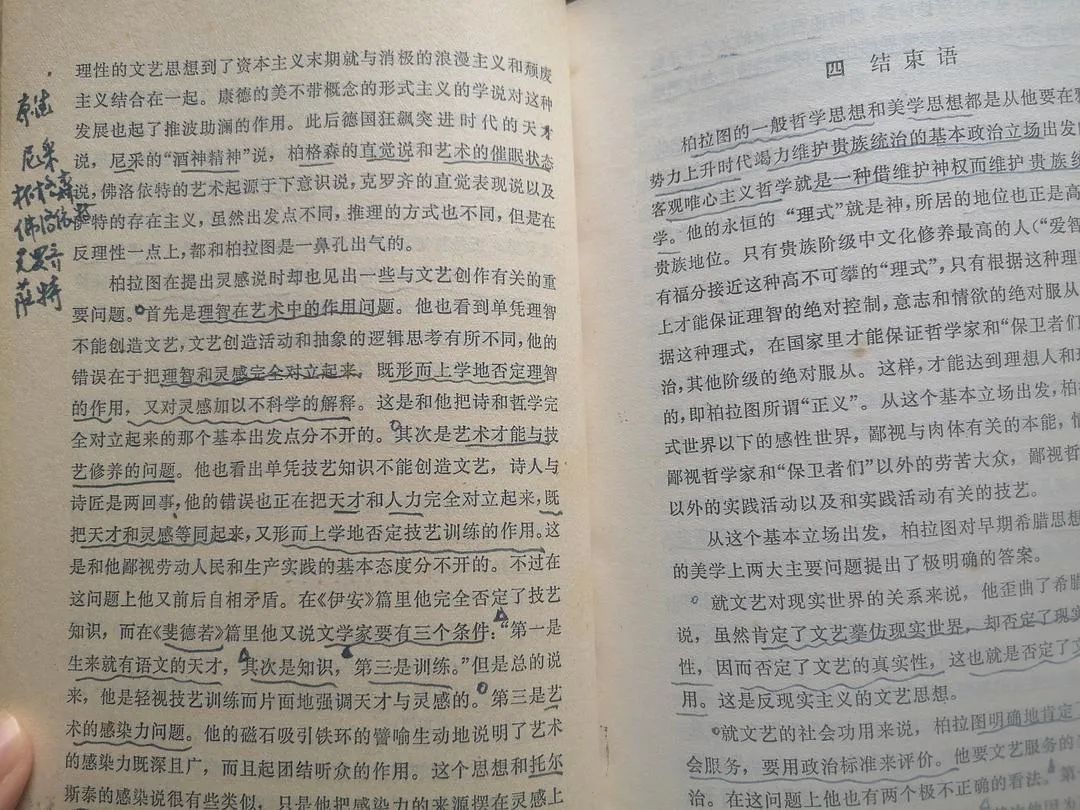 康德
尼采
柏格森
佛洛依特
克罗齐
萨特
理性的文艺思想到了资本主义末期就与消极的浪漫主义和颓废
主义结合在一起。康德的美不带概念的形式主义的学说对这种
发展也起了推波助澜的作用。此后德国狂飙突进时代的天才
说，尼采的“酒神精神”说，柏格森的直觉说和艺术的催眠状态
说，佛洛依特的艺术起源于下意识说，克罗齐的直觉表现说以及
萨特的存在主义，虽然出发点不同，推理的方式也不同，但是在
反理性一点上，都和柏拉图是一鼻孔出气的。
柏拉图在提出灵感说时却也见出一些与文艺创作有关的重
要问题。首先是理智在艺术中的作用问题。他也看到单凭理智
不能创造文艺，文艺创造活动和抽象的逻辑思考有所不同，他的
错误在于把理智和灵感完全对立起来，既形而上学地否定理智
的作用，又对灵感加以不科学的解释。这是和他把诗和哲学完
全对立起来的那个基本出发点分不开的。其次是艺术才能与技
艺修养的问题。他也看出单凭技艺知识不能创造文艺，诗人与
诗匠是两回事，他的错误也正在把天才和人力完全对立起来，既
把天才和灵感等同起来，又形而上学地否定技艺训练的作用。这
是和他鄙视劳动人民和生产实践的基本态度分不开的。不过在
这问题上他又前后自相矛盾。在《伊安》篇里他完全否定了技艺
知识，而在《斐德若》篇里他又说文学家要有三个条件：“第一是
生来就有语文的天才，其次是知识，第三是训练。”但是总的说
来，他是轻视技艺训练而片面地强调天才与灵感的。第三是艺
术的感染力问题。他的磁石吸引铁环的譬喻生动地说明了艺术
的感染力既深且广，而且起团结听众的作用。这个思想和托尔
斯泰的感染说很有些类似，只是他把感染力的来源摆在灵感上
四 结束语
柏拉图的一般哲学思想和美学思想都是从他要在
势力上升时代竭力维护贵族统治的基本政治立场出发
客观唯心主义哲学就是一种借维护神权而维护贵族
学。他的永恒的“理式”就是神，所居的地位也正是高
贵族地位。只有贵族阶级中文化修养最高的人（“爱智
有福分接近这种高不可攀的“理式”，只有根据这种理
上才能保证理智的绝对控制，意志和情欲的绝对服从
据这种理式，在国家里才能保证哲学家和“保卫者们
治，其他阶级的绝对服从。这样，才能达到理想人和
的，即柏拉图所谓“正义”。从这个基本立场出发，柏
式世界以下的感性世界，鄙视与肉体有关的本能，
鄙视哲学家和“保卫者们”以外的劳苦大众，鄙视
以外的实践活动以及和实践活动有关的技艺。
从这个基本立场出发，柏拉图对早期希腊思想
的美学上两大主要问题提出了极明确的答案。
就文艺对现实世界的关系来说，他歪曲了希腊
说，虽然肯定了文艺摹仿现实世界，却否定了现
性，因而否定了文艺的真实性，这也就是否定了文
用。这是反现实主义的文艺思想。
就文艺的社会功用来说，柏拉图明确地肯定
会服务，要用政治标准来评价。他要文艺服务的
治。在这问题上他也有两个极不正确的看法。第